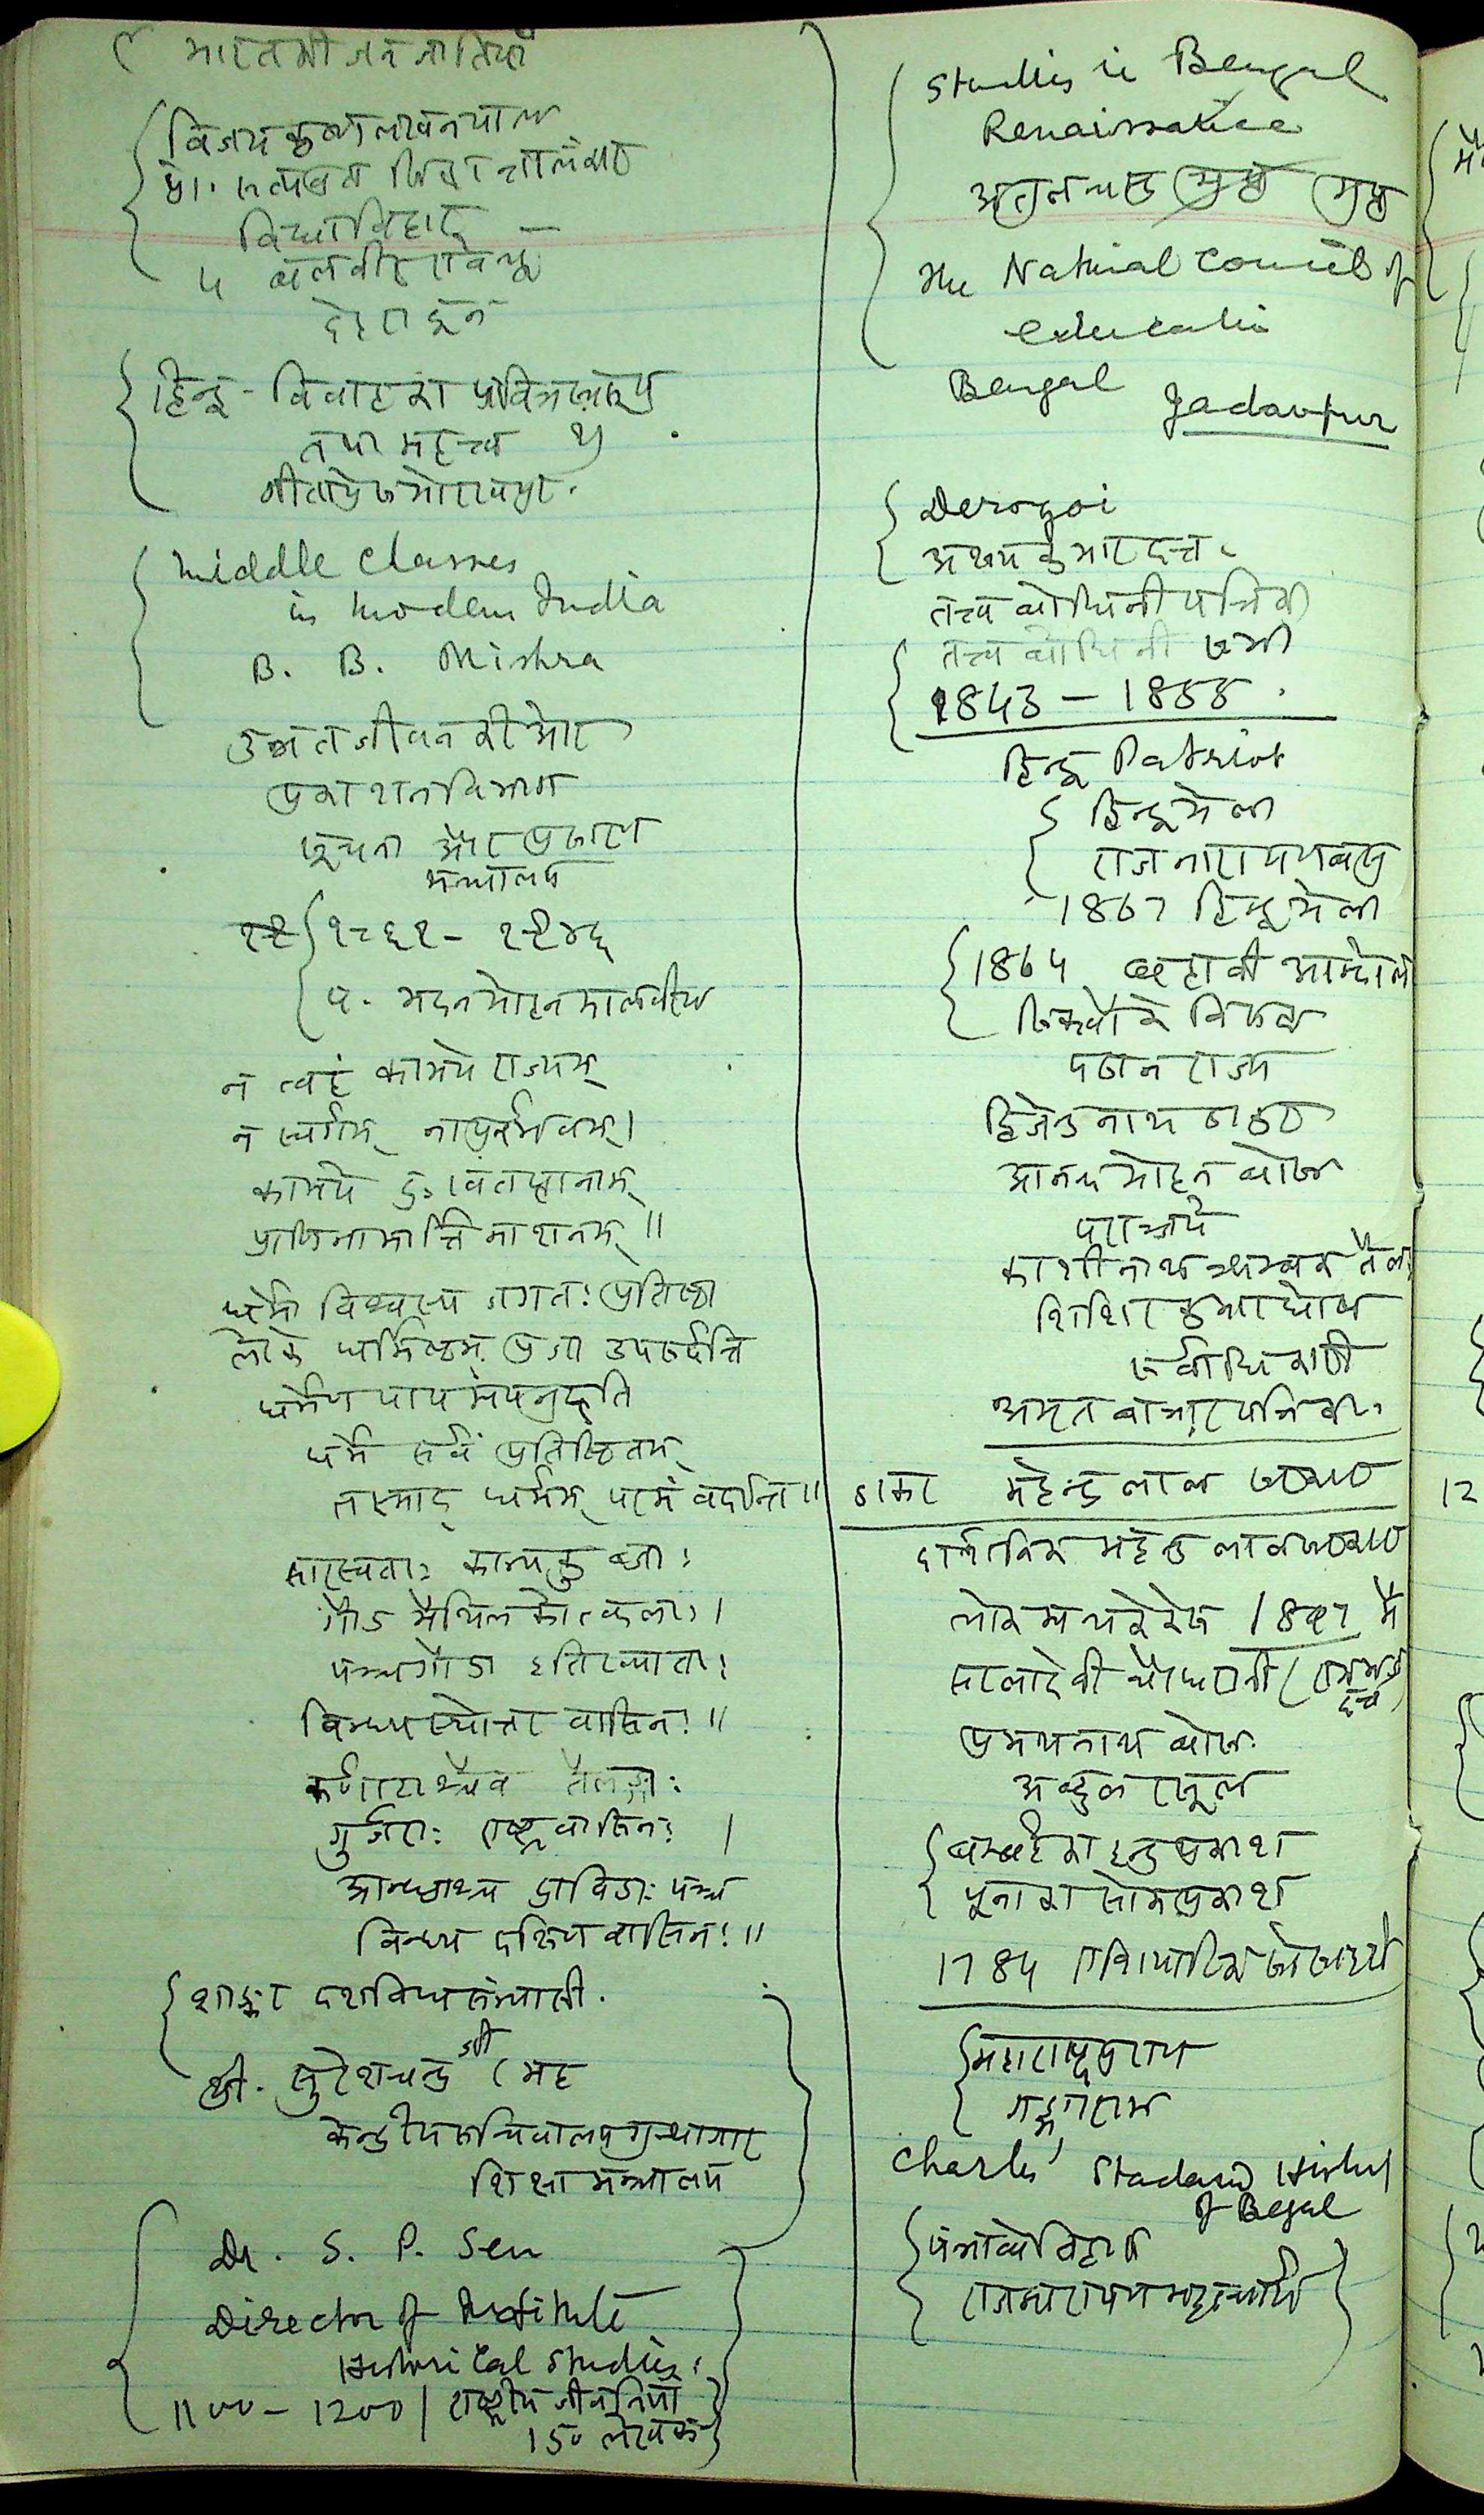 भारत की जन जातियाँ
विजय कृष्ण लखनपाल
प्रो. सत्यव्रत सिद्धान्तालंकार
विद्याविहार
४ बलबीर एवेन्यू
देहरादून
हिन्दू - विवाह का पवित्र स्वरूप
तथा महत्त्व
गीताप्रेस गोरखपुर.
Middle Classes
in Modern India
B. B. Mishra
उन्नत जीवन की ओर
प्रकाशन विभाग
सूचना और प्रसारण
मन्त्रालय
१८६१ - १९४६
पं. मदन मोहन मालवीय
न त्वहं कामये राज्यम्
न स्वर्गम् नापुनर्भवम् ।
कामये दुःखतप्तानाम्
प्राणिनामार्त्तिनाशनम् ॥
धर्मो विश्वस्य जगतः प्रतिष्ठा
लोके धर्मिष्ठम् प्रजा उपसर्पन्ति
धर्मेण पापमपनुदति
धर्मे सर्वं प्रतिष्ठितम्
तस्माद् धर्मम् परमं वदन्ति ॥
सारस्वताः कान्यकुब्जाः
गौड मैथिलकोत्कलाः ।
पञ्चगौडा इति ख्याताः
विन्ध्यस्योत्तर वासिनः ॥
कर्णाटाश्चैव तैलङ्गाः
गुर्जराः राष्ट्रवासिनः ।
आन्ध्राश्च द्राविडाः पञ्च
विन्ध्य दक्षिण वासिनः ॥
शाङ्कर दशविध संन्यासी.
श्री. सुरेशचन्द्र जी
केन्द्रीय सचिवालय ग्रन्थागार
शिक्षा मन्त्रालय
Dr. S. P. Sen
Director of Institute
Historical Studies
1100 - 1200 | राष्ट्रीय जीवनियाँ
150 लेखक
Studies in Bengal
Renaissance
अतुलचन्द्र गुप्त
The National Council of
education
Bengal Jadavpur
Derozoi
अक्षय कुमार दत्त
तत्त्व बोधिनी पत्रिका
तत्त्व बोधिनी सभा
1843 - 1855
हिन्दू Patriot
हिन्दू मेला
राजनारायण बसु
1867 हिन्दू मेला
1864 बहावी आन्दोलन
सिक्खों के विरुद्ध
पठान राज्य
द्विजेन्द्रनाथ ठाकुर
आनन्द मोहन बोस
परांजपे
काशीनाथ त्र्यम्बक तैलं
शिशिर कुमार घोष
सर्वाधिकारी
अमृत बाजार पत्रिका
डाक्टर महेन्द्र लाल सरकार
दार्शनिक महेन्द्र लाल सरकार
1897 में
सरलादेवी चौधरानी
प्रमथनाथ बोस
अब्दुल रसूल
बम्बई का इन्दुप्रकाश
पूना का सोमप्रकाश
1784 एशियाटिक सोसायटी
महाराष्ट्र पुराण
गङ्गाराम
Charles' Standard History
of Bengal
राजनारायण भट्टाचार्य
12